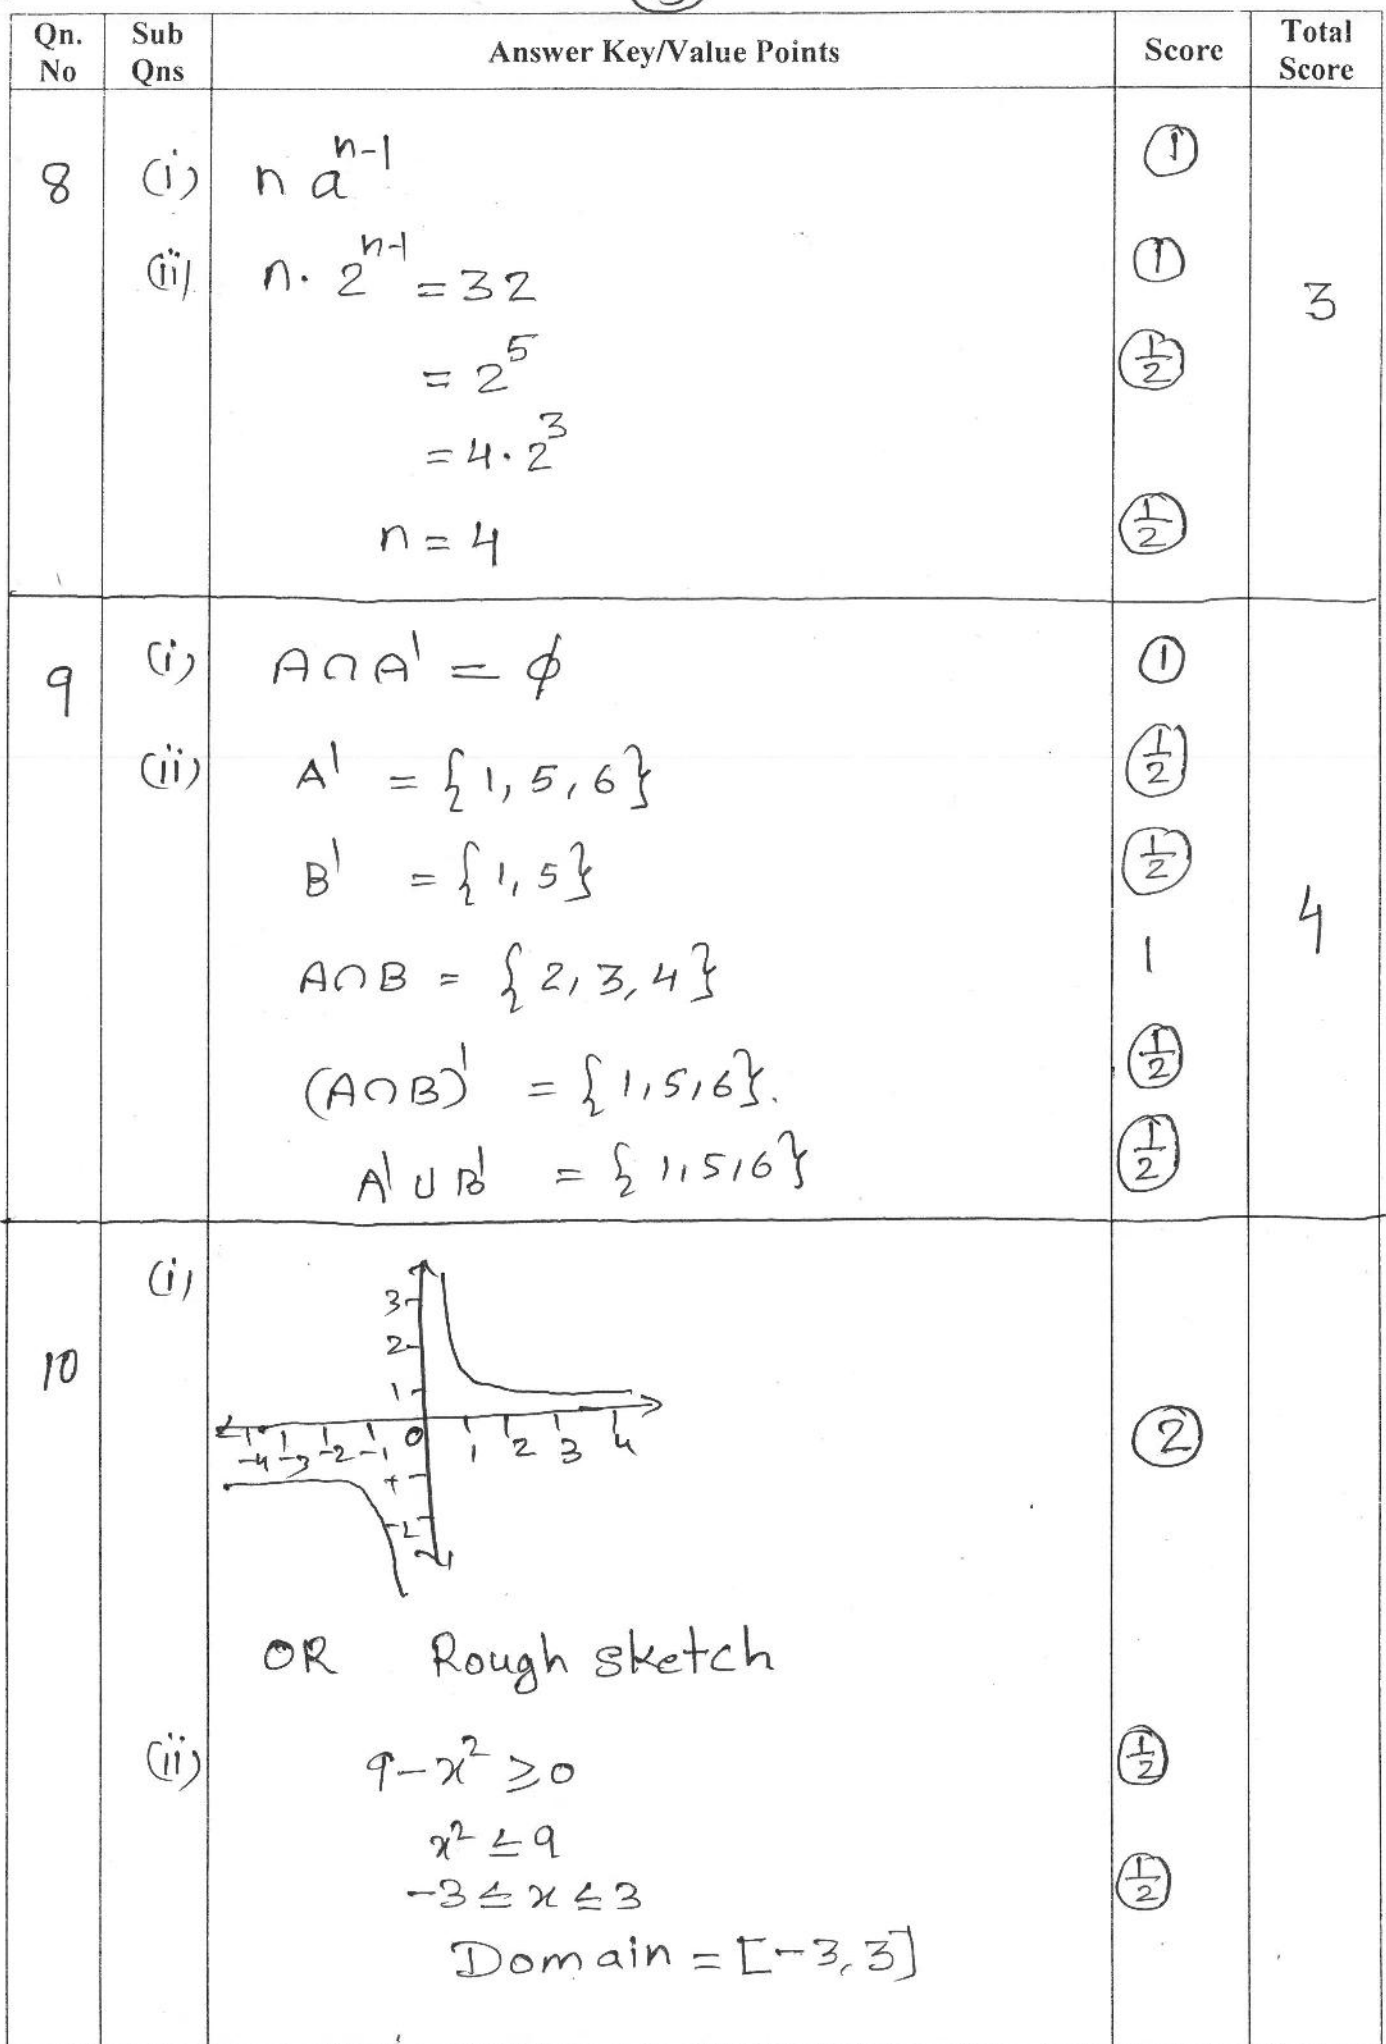 Qn. No | Sub Qns | Answer Key/Value Points | Score | Total Score
8 (i) n a^{n-1} ①
(ii) n. 2^{n-1} = 32 ① 3
= 2^5 (1/2)
= 4.2^3
n = 4 (1/2)
9 (i) A∩A' = ϕ ①
(ii) A' = {1, 5, 6} (1/2)
B' = {1, 5} (1/2)
A∩B = {2, 3, 4} 1 4
(A∩B)' = {1,5,6}. (1/2)
A' ∪ B' = {1,5,6} (1/2)
(i)
3
2
10
1
-4 -3 -2 -1 0 1 2 3 4 ②
-2
OR Rough sketch
(ii) 9-x² ≥ 0 (1/2)
x² ≤ 9
-3 ≤ x ≤ 3 (1/2)
Domain = [-3, 3]